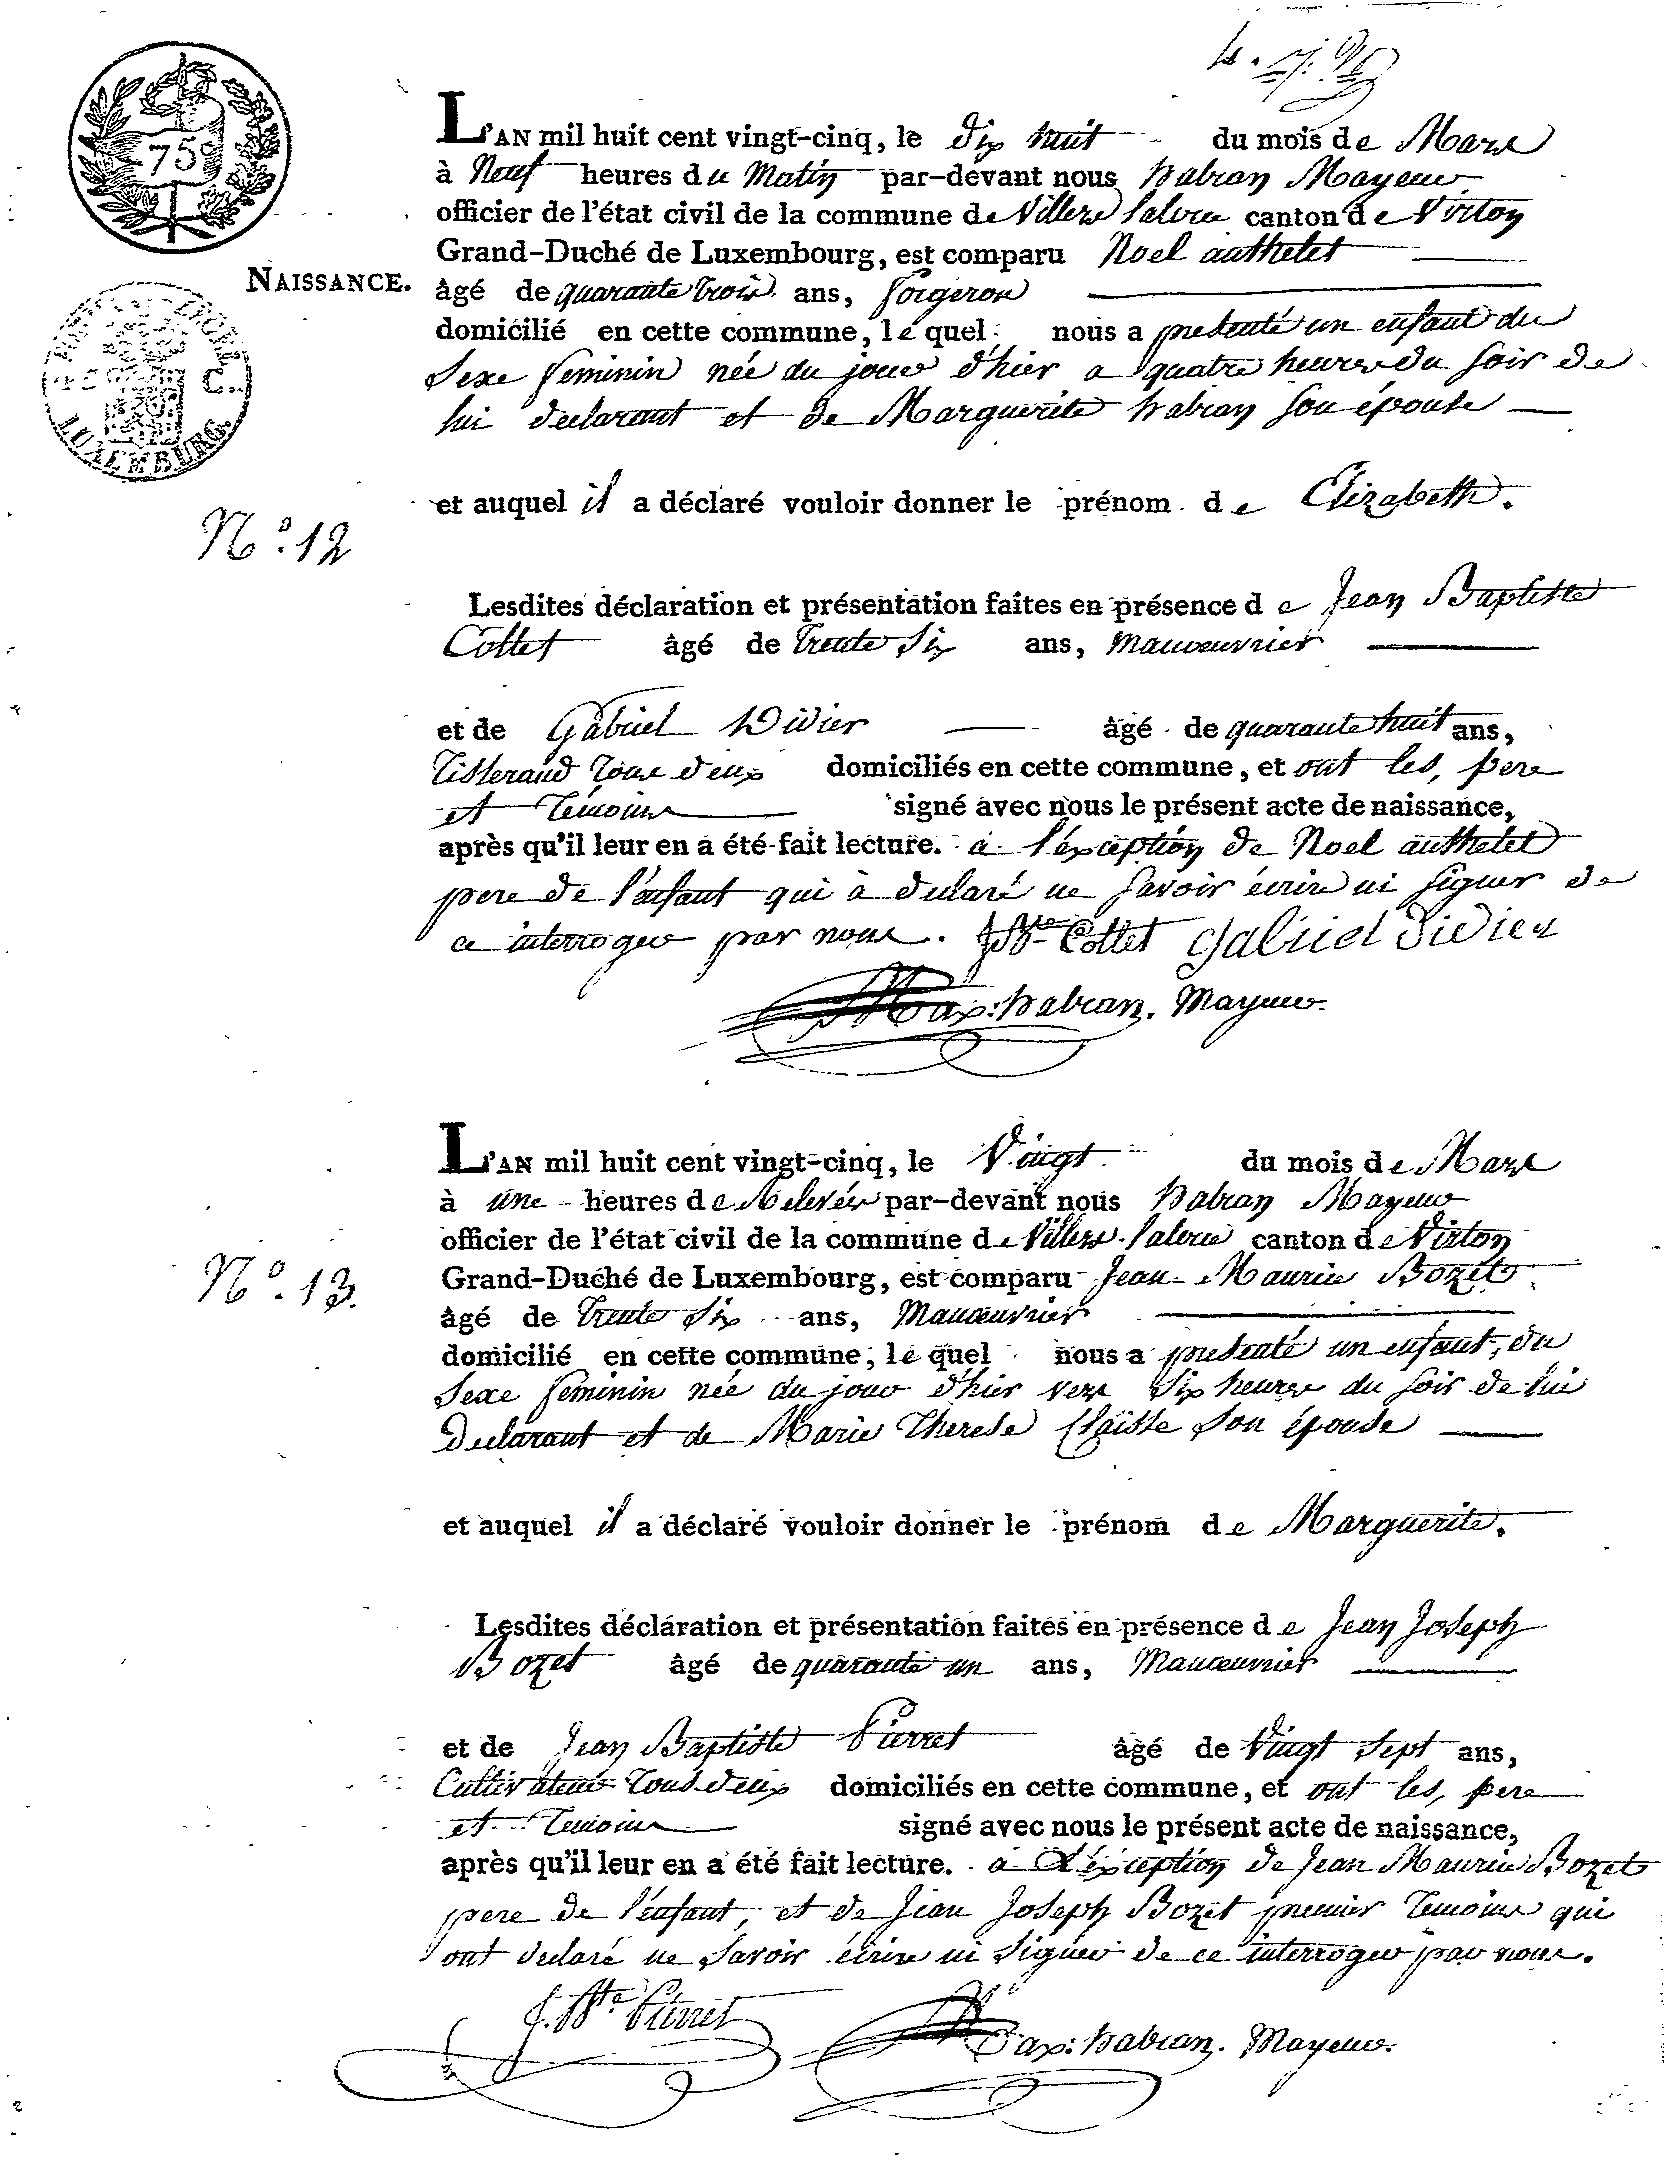 75c
L'AN mil huit cent vingt-cinq, le dix huit du mois de Mars
à Neuf heures du Matin par-devant nous habran Mayeur
officier de l'état civil de la commune de Villers Laloue canton de Virton
Grand-Duché de Luxembourg, est comparu Noel authelet
NAISSANCE.
âgé de quarante trois ans, forgeron
domicilié en cette commune, le quel nous a presenté un enfant du
Sexe feminin née du jour d'hier a quatre heures du soir de
LUXEMBURG.
lui declarant et de Marguerite habran son épouse
et auquel il a déclaré vouloir donner le prénom de Elizabeth.
N.o 12
Lesdites déclaration et présentation faites en présence de Jean Baptiste
Collet âgé de trente Six ans, manœuvrier
et de Gabriel Didier âgé de quarante huit ans,
Tisserand Tous deux domiciliés en cette commune, et ont les, pere
et Temoins signé avec nous le présent acte de naissance,
après qu'il leur en a été fait lecture. a l'exception de Noel authelet
pere de l'enfant qui à declaré ne savoir écrire ni signer de
ce interroger par nous. JBte Collet Gabriel Didier
Max: habran. Mayeur.
L'AN mil huit cent vingt-cinq, le Vingt du mois de Mars
à une heures de Relevée par-devant nous habran Mayeur
officier de l'état civil de la commune de Villers-Laloue canton de Virton
N.o 13.
Grand-Duché de Luxembourg, est comparu Jean Maurice Bozet
âgé de trente Six ans, Manœuvrier
domicilié en cette commune, le quel nous a presenté un enfant, du
Sexe feminin née du jour d'hier vers Six heures du soir de lui
Declarant et de Marie Therese Claisse Son épouse
et auquel il a déclaré vouloir donner le prénom de Marguerite.
Lesdites déclaration et présentation faites en présence de Jean Joseph
Bozet âgé de quarante un ans, Manœuvrier
et de Jean Baptiste Pierret âgé de Vingt Sept ans,
Cultivateur Tous deux domiciliés en cette commune, et ont les, pere
et Temoins signé avec nous le présent acte de naissance,
après qu'il leur en a été fait lecture. a L'exception de Jean Maurice Bozet
pere de l'enfant, et de Jean Joseph Bozet premier Temoins qui
ont declaré ne Savoir écrire ni Signer de ce interroger par nous.
J. Bte Pierret Max: habran. Mayeur.